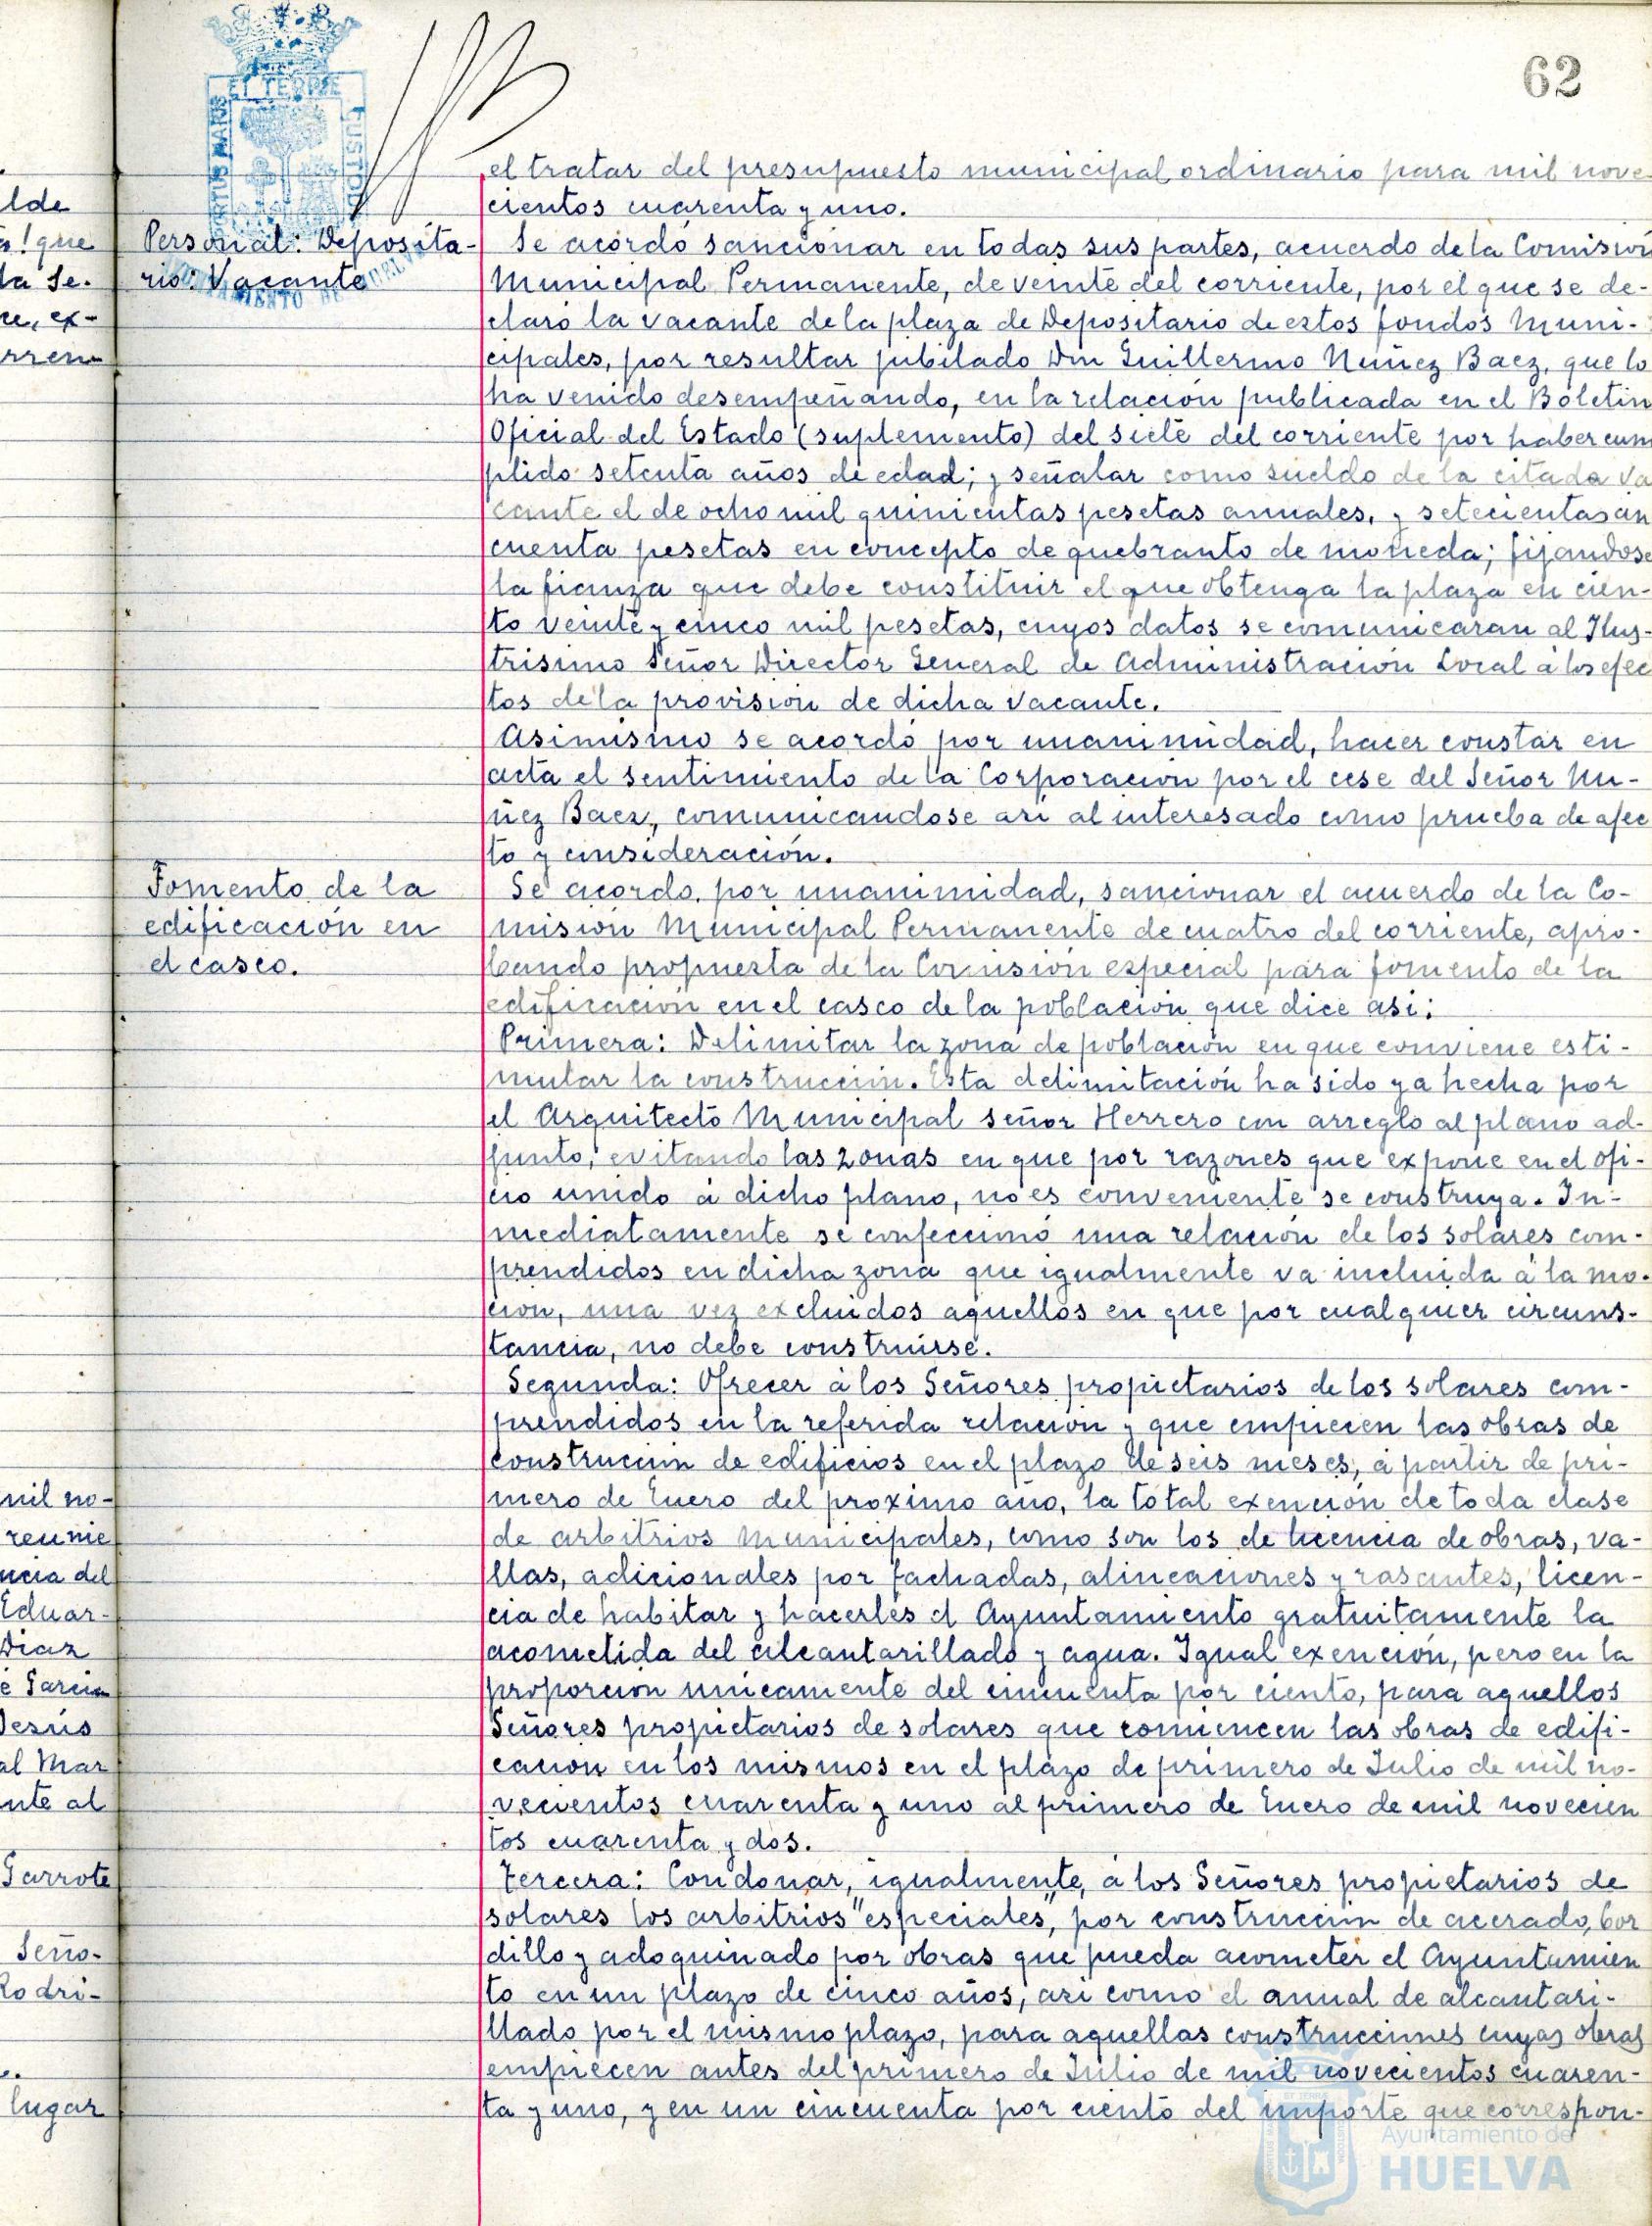 62
el tratar del presupuesto municipal ordinario para mil nove-
cientos cuarenta y uno.
Personal: Deposita-
rio: Vacante
Se acordó sancionar en todas sus partes, acuerdo de la Comisión
Municipal Permanente, de veinte del corriente, por el que se de-
claró la vacante de la plaza de Depositario de estos fondos Muni-
cipales, por resultar jubilado Don Guillermo Nuñez Baez, que lo
ha venido desempeñando, en la relación publicada en el Boletin
Oficial del Estado (suplemento) del siete del corriente por haber cum
plido setenta años de edad; y señalar como sueldo de la citada va
cante el de ocho mil quinientas pesetas anuales, y setecientas cin
cuenta pesetas en concepto de quebranto de moneda; fijandose
la fianza que debe constituir el que obtenga la plaza en cien-
to veinte y cinco mil pesetas, cuyos datos se comunicaran al Ilus-
trisimo Señor Director General de Administración Local á los efec
tos de la provisión de dicha vacante.
Asimismo se acordó por unanimidad, hacer constar en
acta el sentimiento de la Corporación por el cese del Señor Nu-
ñez Baez, comunicandose asi al interesado como prueba de afec
to y consideración.
Fomento de la
edificación en
el casco.
Se acordo, por unanimidad, sancionar el acuerdo de la Co-
misión Municipal Permanente de cuatro del corriente, apro-
bando propuesta de la Comisión especial para fomento de la
edificación en el casco de la población que dice asi:
Primera: Delimitar la zona de población en que conviene esti-
mular la construcción. Esta delimitación ha sido ya hecha por
el Arquitecto Municipal señor Herrero con arreglo al plano ad-
junto, evitando las zonas en que por razones que expone en el ofi-
cio unido á dicho plano, no es conveniente se construya. In-
mediatamente se confeccionó una relación de los solares com-
prendidos en dicha zona que igualmente va incluida á la mo-
cion, una vez excluidos aquellos en que por cualquier circuns-
tancia, no debe construirse.
Segunda: Ofrecer á los Señores propietarios de los solares com-
prendidos en la referida relacion y que empiecen las obras de
construcción de edificios en el plazo de seis meses, á partir de pri-
mero de Enero del proximo año, la total exención de toda clase
de arbitrios Municipales, como son los de licencia de obras, va-
llas, adicionales por fachadas, alineaciones y rasantes, licen-
cia de habitar y hacerles el Ayuntamiento gratuitamente la
acometida del alcantarillado y agua. Igual exención, pero en la
proporcion unicamente del cincuenta por ciento, para aquellos
Señores propietarios de solares que comiencen las obras de edifi-
cacion en los mismos en el plazo de primero de Julio de mil no-
vecientos cuarenta y uno al primero de Enero de mil novecien
tos cuarenta y dos.
Tercera: Condonar, igualmente, á los Señores propietarios de
solares los arbitrios "especiales", por construcción de acerado, bor
dillo y adoquinado por obras que pueda acometer el Ayuntamien
to en un plazo de cinco años, asi como el anual de alcantari-
llado por el mismo plazo, para aquellas construcciones cuyas obras
empiecen antes del primero de Julio de mil novecientos cuaren-
ta y uno, y en un cincuenta por ciento del importe que correspon-
lde
que
la Se-
ce, ex-
rreno
mil no-
reunie
ncia del
Eduar-
Diaz
e Garcia
Jesús
al Mar
nte al
Garrote
Seño-
Rodri-
lugar
Ayuntamiento de
HUELVA